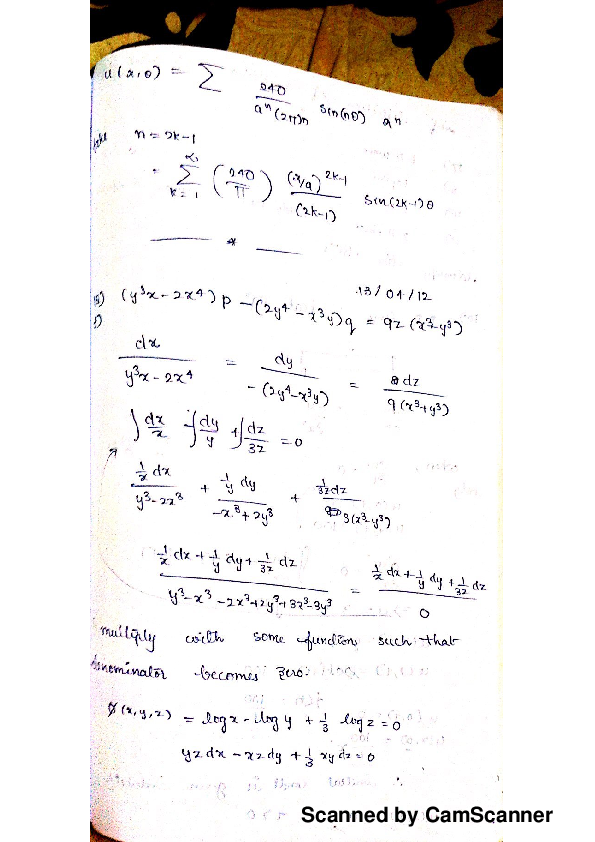 u(r,θ) = ∑ 240 / aⁿ(2π)n sin(nθ) aⁿ
n = 2k-1
= ∑_{k=1}^{∞} (240/π) (r/a)^{2k-1} / (2k-1) sin(2k-1)θ
*
13/04/12
1) (y³x - 2x⁴) p - (2y⁴ - x³y) q = 9z (x³-y³)
dx / y³x - 2x⁴ = dy / -(2y⁴-x³y) = dz / 9(x³+y³)
∫ dx/x - ∫ dy/y + ∫ dz/3z = 0
1/x dx / y³-2x³ + 1/y dy / -x³+2y³ + 1/3z dz / 3(x³-y³)
1/x dx + 1/y dy + 1/3z dz / y³-x³-2x³+2y³+3x³-3y³ = 1/x dx + 1/y dy + 1/3z dz / 0
multiply with some function such that
denominator becomes zero.
φ(x,y,z) = log x - log y + 1/3 log z = 0
yz dx - xz dy + 1/3 xy dz = 0
Scanned by CamScanner